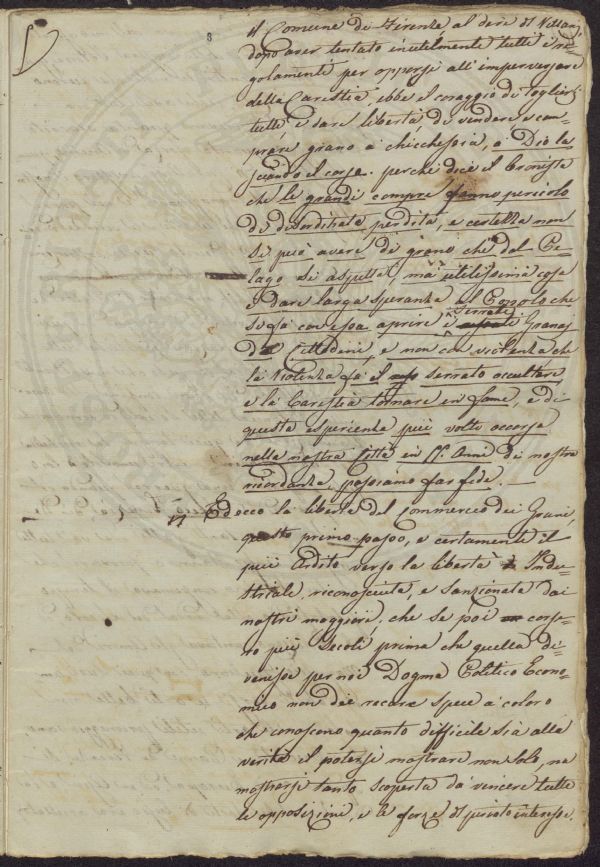 8
Il Comune di Firenze al dire di Villani,
dopo aver tentato inutilmente tutti i re=
golamenti per opporsi all'imperversare
della Carestia, ebbe il coraggio di toglierli
tutti e dare libertà di vendere e com=
prare grano a chichesia, o Dio la
sciando il corso. perché dice il Cronista
che le grandi compre fanno pericolo
di disordinata perdita, e certezza non
si può avere di grano che dal Pe=
lago si aspetta, mà utilissima cosa
è dare larga speranza al Popolo che
si fà con essa aprire i serrati Granaj
de Cittadini, e non con violenza che
la violenza fà il serrato occultare
e la Carestia tornare in fame, e di
questa esperienza più volte occorsa
nella nostra Città in 55. Anni di nostra
ricordanza possiamo far fede. —
Ed ecco la libertà del commercio dei Grani,
questo primo passo, e certamente il
più ardito verso la libertà Indu=
striale, riconosciuta, e sanzionata dai
nostri maggiori, che se poi corse=
ro più secoli prima che quella di=
venisse per noi Dogma Politico Econo=
mico non dee recare specie a coloro
che conoscono quanto difficile sia alla
verità il potersi mostrare non solo, ma
mostrarsi tanto scoperta da vincere tutte
le opposizioni, e le forze di privato interesse.